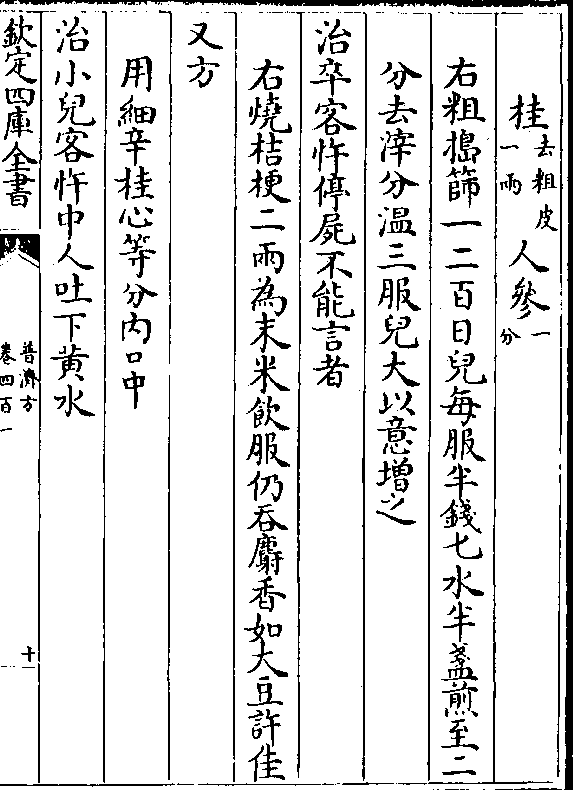 桂去粗皮一兩 人參一分
右粗搗篩一二百日兒每服半錢七水半盞煎至二
分去滓分温三服兒大以意增之
治卒客忤停屍不能言者
右燒桔梗二兩為末米飲服仍吞麝香如大豆許佳
又方
用細辛桂心等分内口中
治小兒客忤中人吐下黄水
欽定四庫全書
普濟方
卷四百一
十